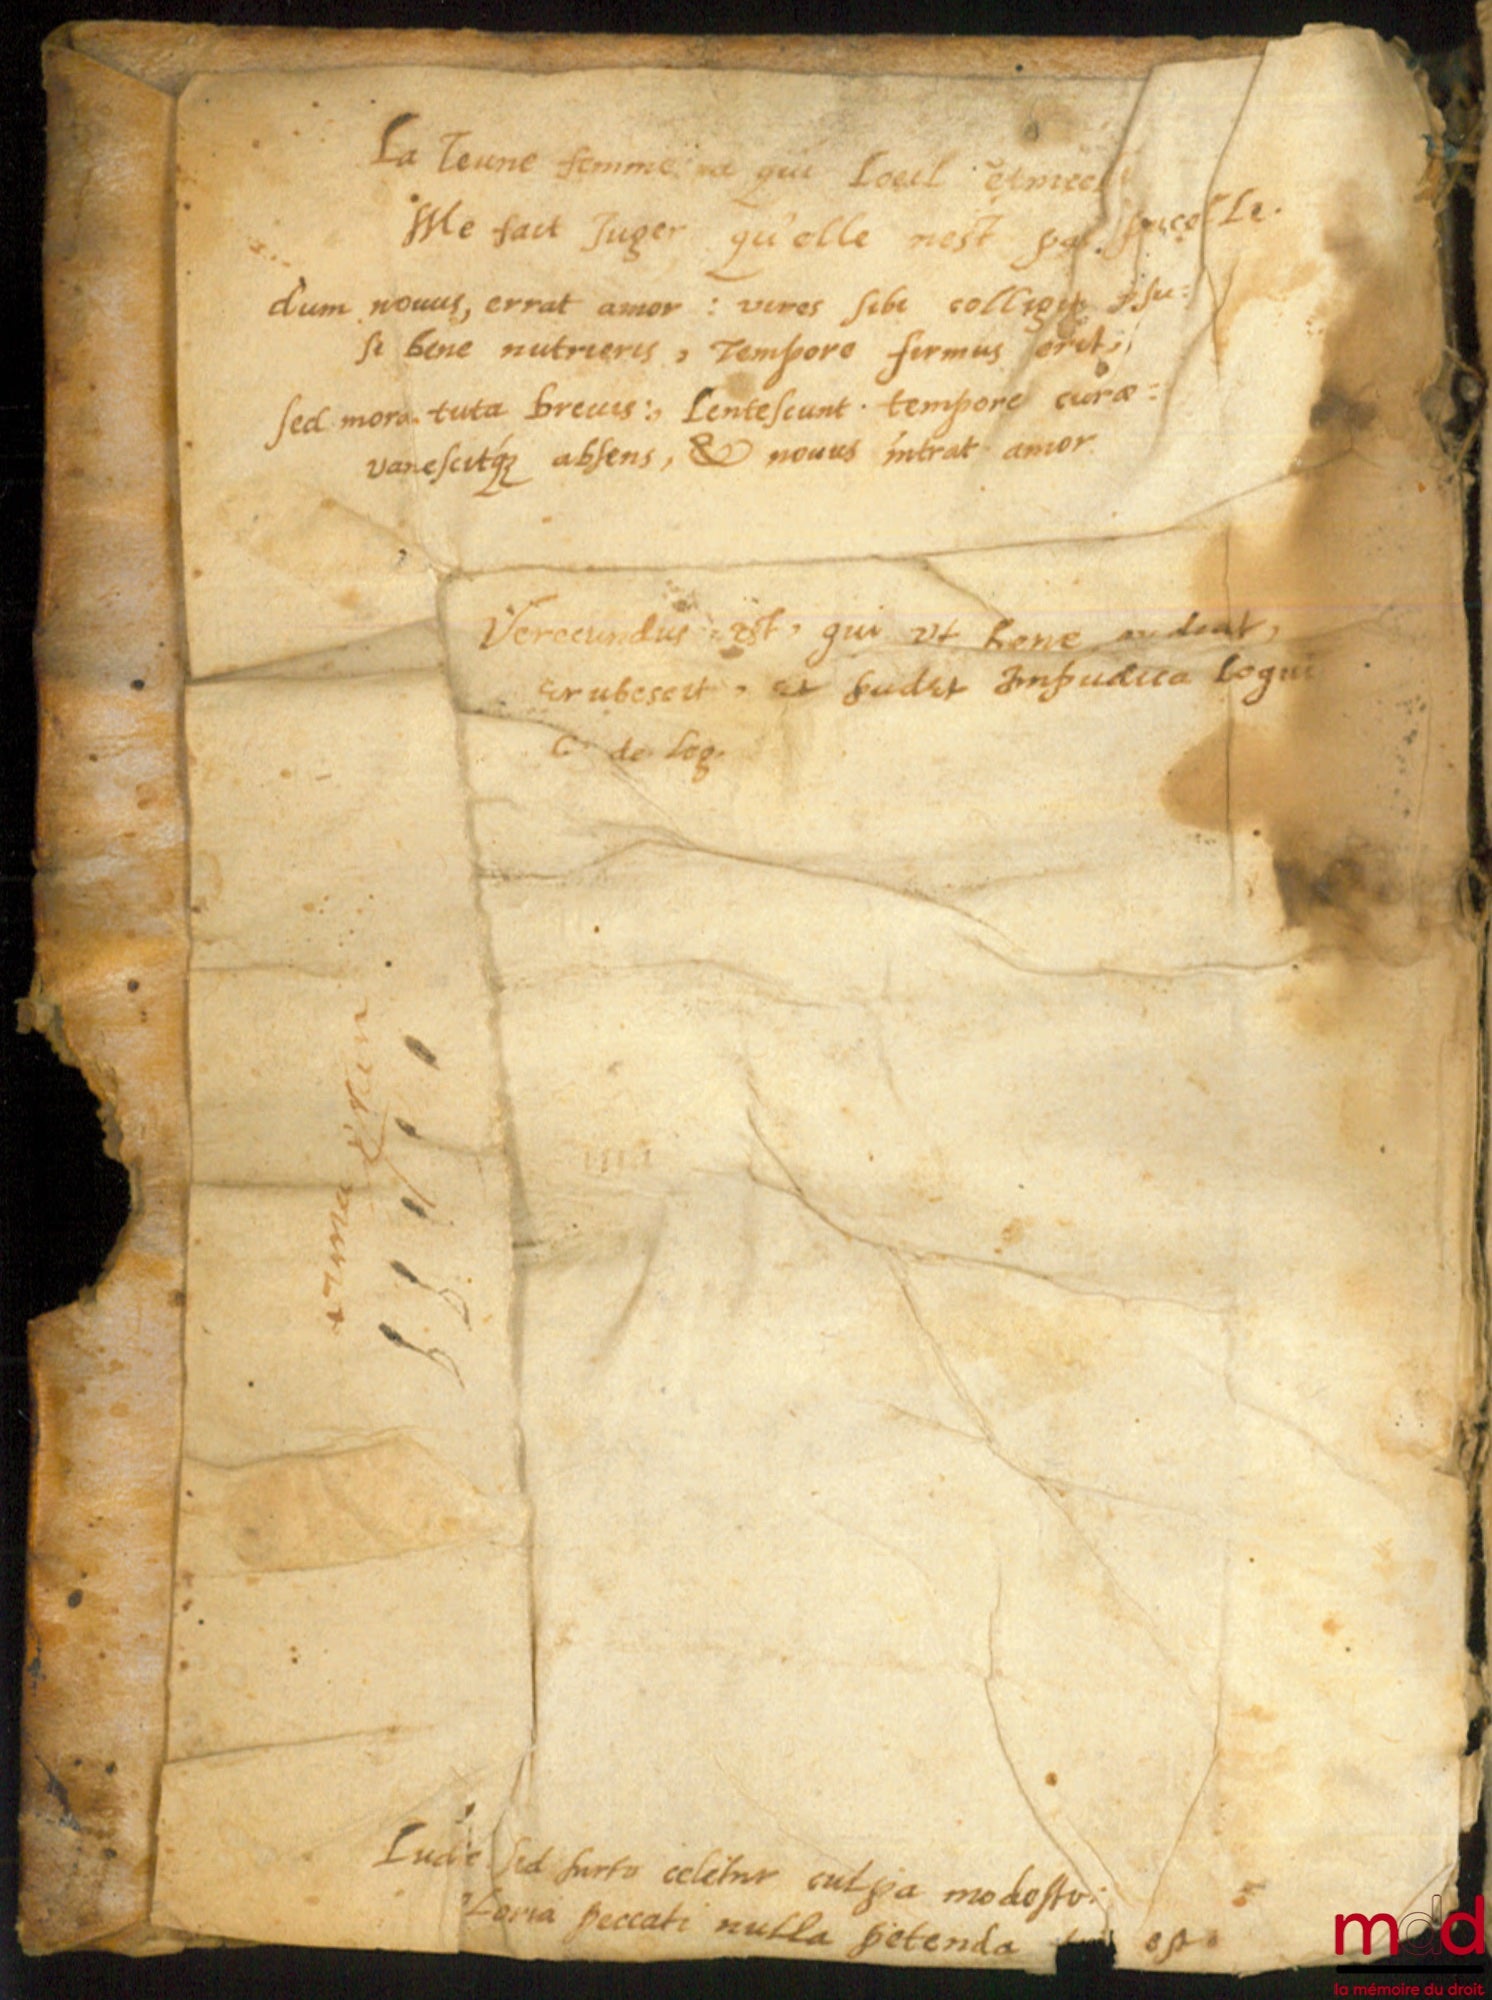 La Jeune femme qui Loeil
Me fait Juger qu'elle nest pas pucelle.
dum nouus, errat amor : vires sibi colligit vsu:
si bene nutrieris, Tempore firmus erit,
sed mora tuta breuis:, Lentescunt tempore curæ:
vanescitq; absens, & nouus intrat amor.
Verecundus est, qui vt bene audiat,
Erubescit, et pudet Impudica Loqui
C. de Leg.
Ludite sed furto celetur culpa modesto:
Gloria peccati nulla petenda est
mdd
la mémoire du droit